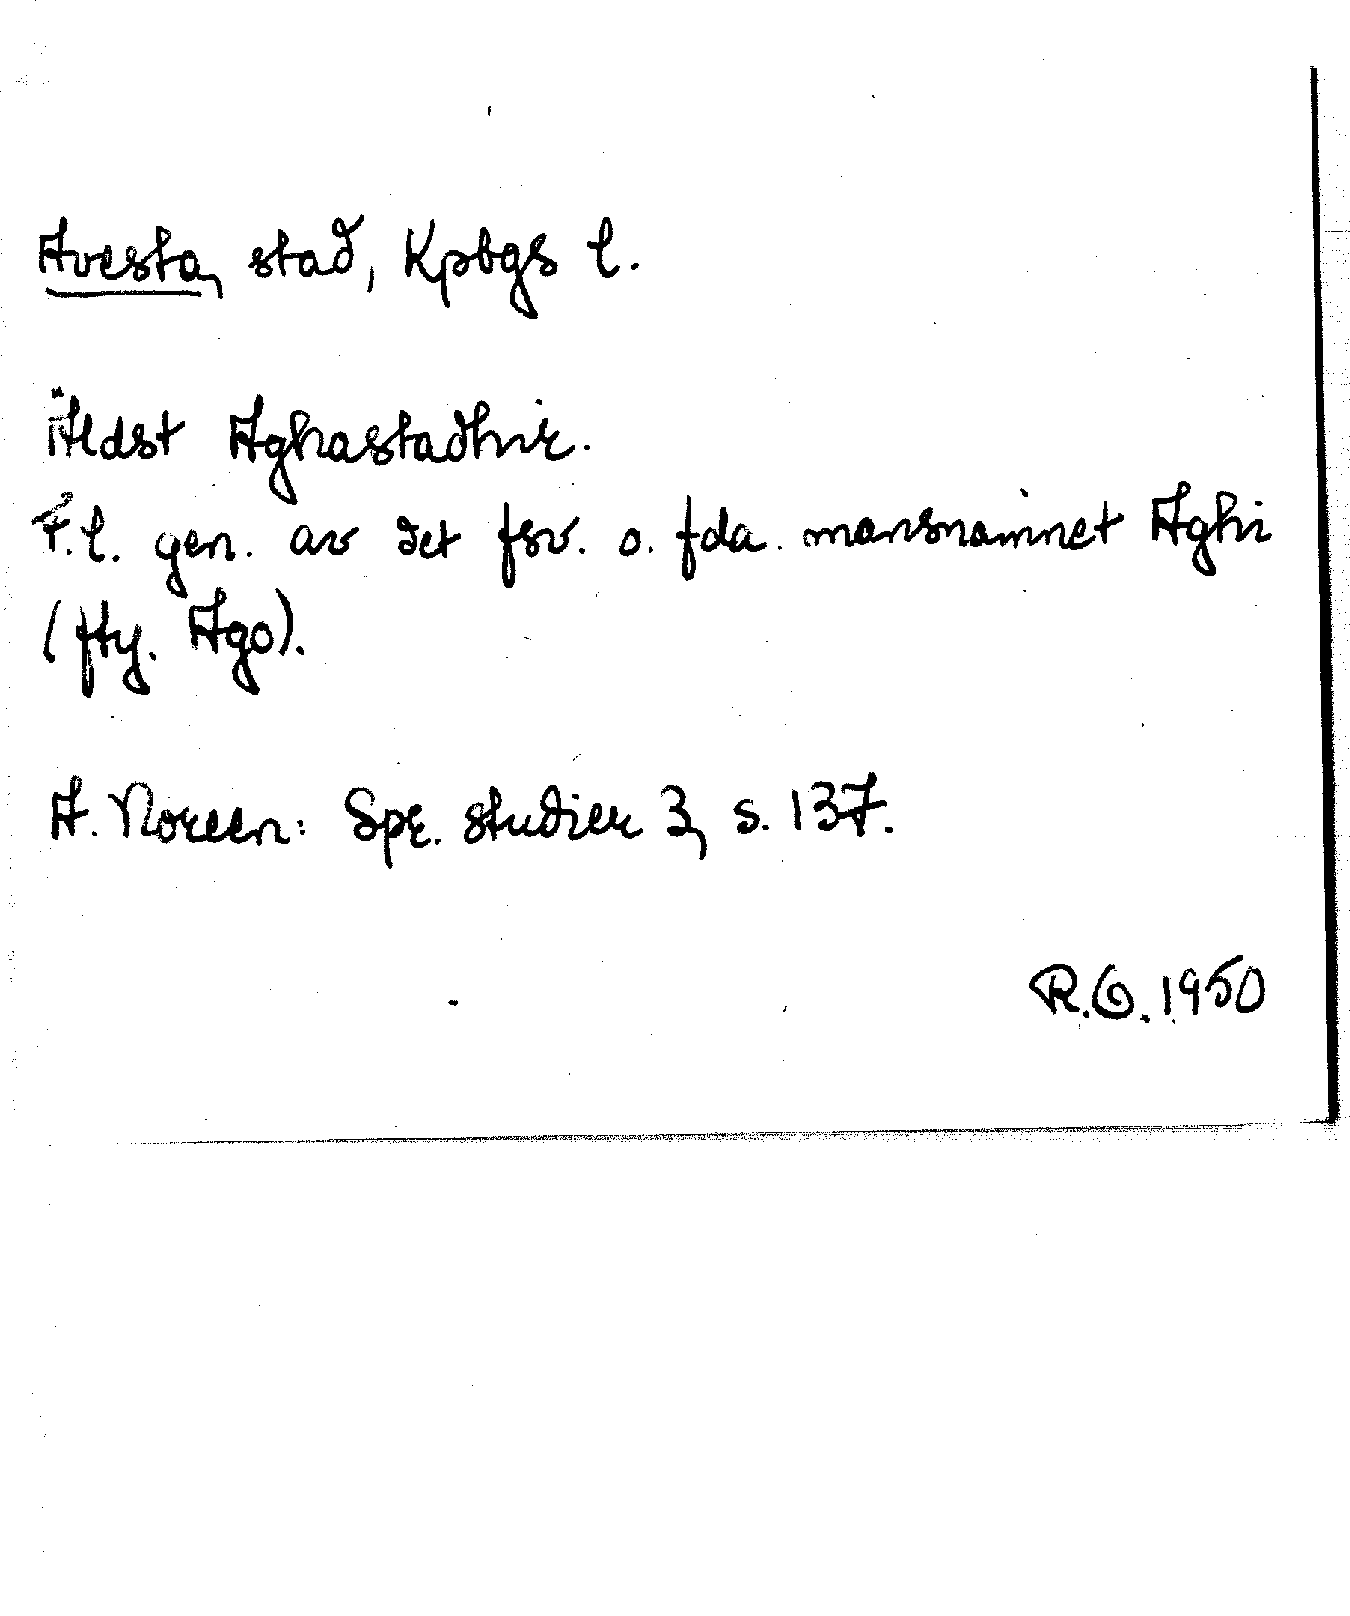 Avesta, stad, Kpbgs l.
Äldst Aghastadhir.
F.l. gen. av det fsv. o. fda. mansnamnet Aghi
(fty. Ago).
A. Noreen: Spr. studier 3, s. 137.
R.O. 1950